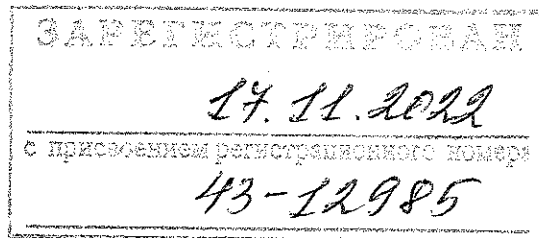 ЗАРЕГИСТРИРОВАН
17.11.2022
с присвоением регистрационного номера
43-12985